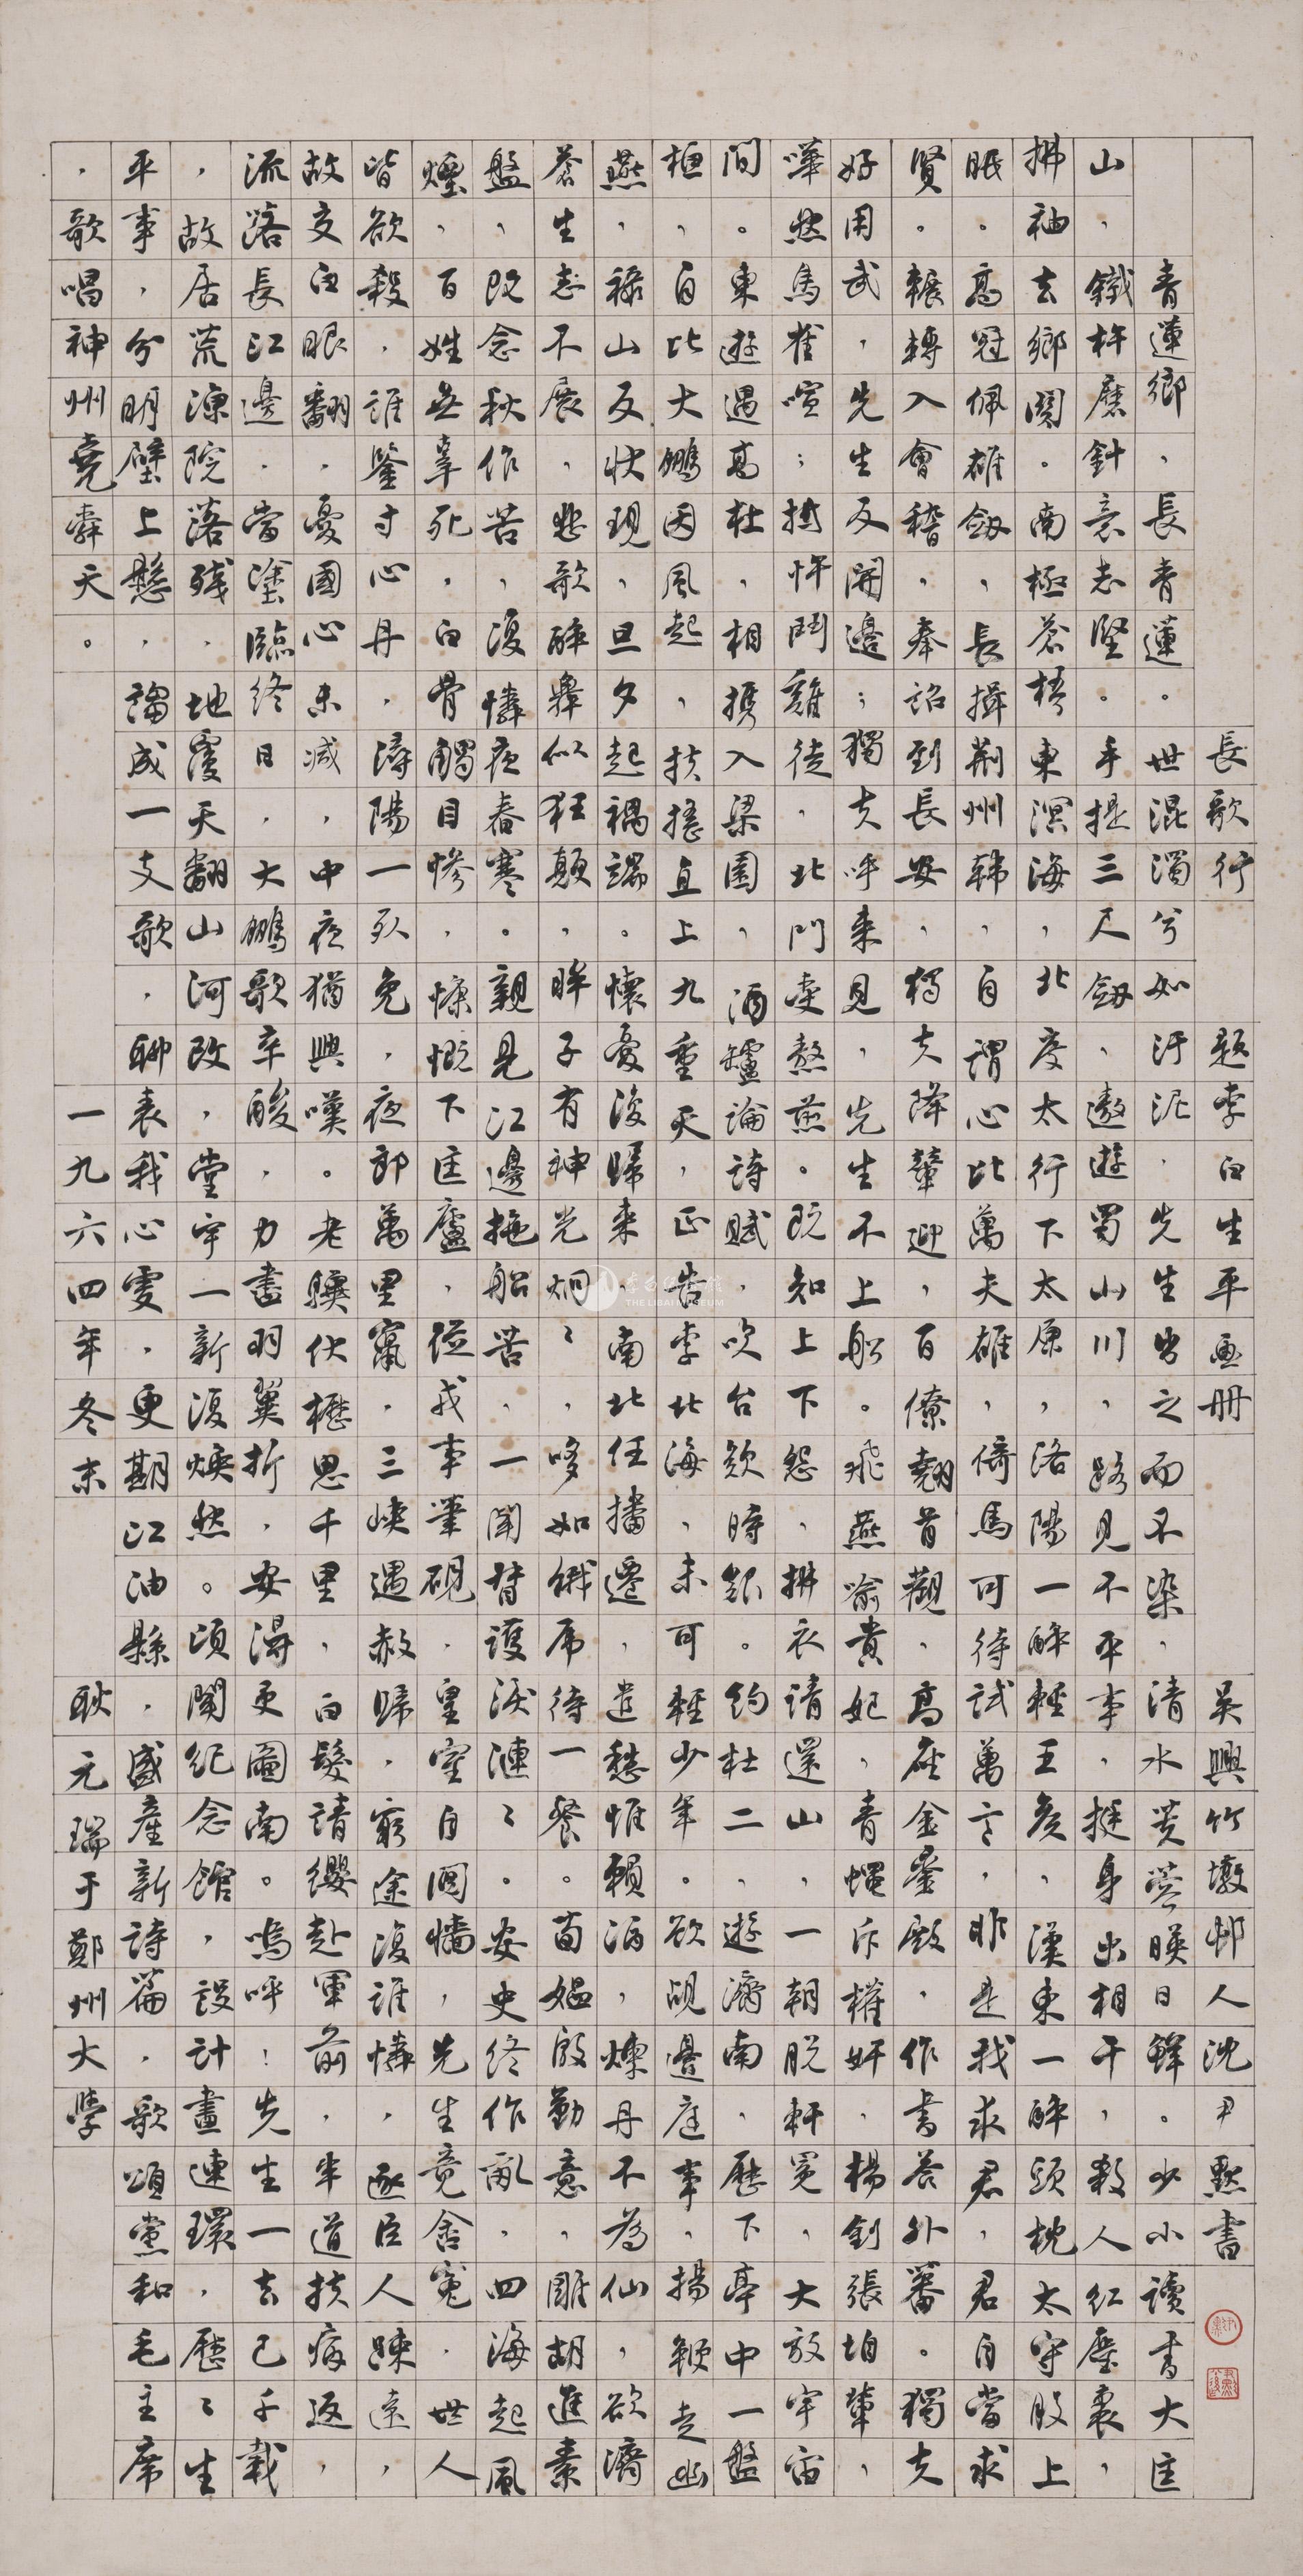 長歌行 題李白生平画册 吴興竹墩邨人沈尹默書
青蓮鄉，長青蓮。世混濁兮如汙泥，先生出之而不染，清水芙蓉映日鮮。少小讀書大匡
山，鐵杵磨針意志堅。手提三尺劔，遨遊蜀山川，路見不平事，挺身出相干，殺人红塵裏，
拂袖去鄉関。南極蒼梧東溟海，北度太行下太原，洛陽一醉輕王矦，漢東一醉頭枕太守股上
眠。高冠佩雄劔，長揖荆州韩，自謂心比萬夫雄，倚馬可待試萬言，昨是我求君，君自當求
賢。輾轉入會稽，奉詔到長安，獨夫降輦迎，百僚翹首觀，高座金鑾殿，作書荅外蕃。獨夫
好用武，先生反開邊；獨夫呼來見，先生不上船。飛燕喻貴妃，青蝇斥權奸，楊釗張垍輩，
嘩然馬雀喧；抵忤鬥雞徒，北門受熬煎。既知上下怨，拂衣請還山，一朝脱軒冕，大放宇宙
間。東遊遇高杜，相攜入梁園，酒罏論詩賦，吹台歎時艱。約杜二，遊濟南，歷下亭中一盤
桓，自比大鵬因風起，扶摇直上九重天，正告李北海，未可輕少年。欲覘邊庭事，揚鞭走幽
燕，祿山反狀現，旦夕起禍端。懷憂復歸來，南北任播遷，遣愁惟賴酒，煉丹不為仙，欲濟
蒼生志不展，悲歌醉舞似狂顛，眸子有神光炯〻，哆如餓虎待一餐。荀媪殷勤意，雕胡進素
盤，既念秋作苦，復憐夜舂寒。親見江邊拖船苦，一聞督護淚漣〻。安史終作亂，四海起風
煙，百姓無辜死，白骨觸目惨，慷慨下匡廬，從戎事筆硯，皇室自鬩墻，先生竟含寃，世人
皆欲殺，誰鑒寸心丹，潯陽一獄免，夜郎萬里竄，三峽遇赦歸，窮途復誰憐，逐臣人踈遠，
故交白眼翻，憂國心未减，中夜猶興嘆。老驥伏櫪思千里，白髮請纓赴軍前，半道扶病返，
流落長江邊，當塗臨终日，大鵬歌辛酸，力盡羽翼折，安得更圖南。嗚呼！先生一去已千载
，故居荒凉院落残，地覆天翻山河改，堂宇一新復焕然。頃聞纪念館，設計畫連環，歷〻生
平事，分明壁上懸，謅成一支歌，聊表我心䖍，更期江油縣，盛産新詩篇，歌頌黨和毛主席
，歌唱神州堯舜天。 一九六四年冬末 耿元瑞于鄭州大學
THE LIBAI MUSEUM